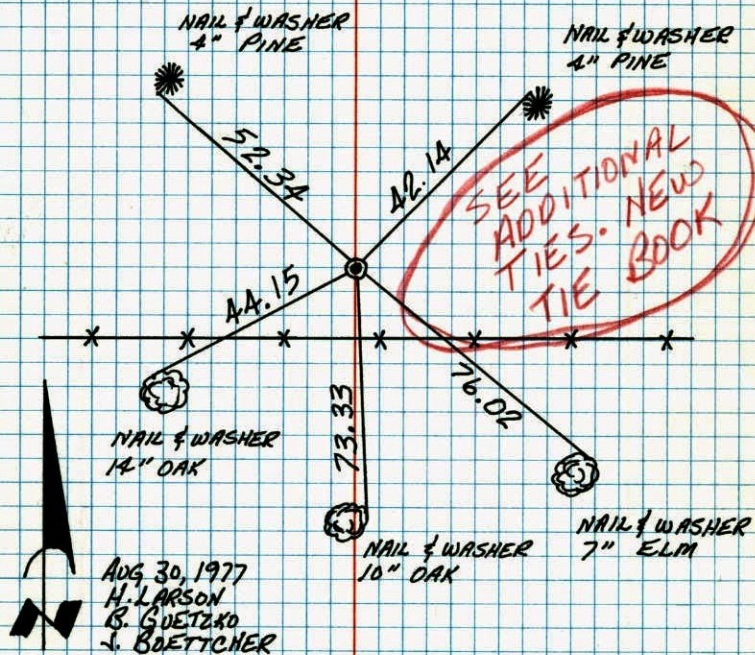 NAIL & WASHER
4" PINE
NAIL & WASHER
4" PINE
52.34
42.14
SEE
ADDITIONAL
TIES. NEW
TIE BOOK
44.15
76.02
73.33
NAIL & WASHER
14" OAK
NAIL & WASHER
10" OAK
NAIL & WASHER
7" ELM
AUG 30, 1977
H. LARSON
B. GUETZKO
J. BOETTCHER
N